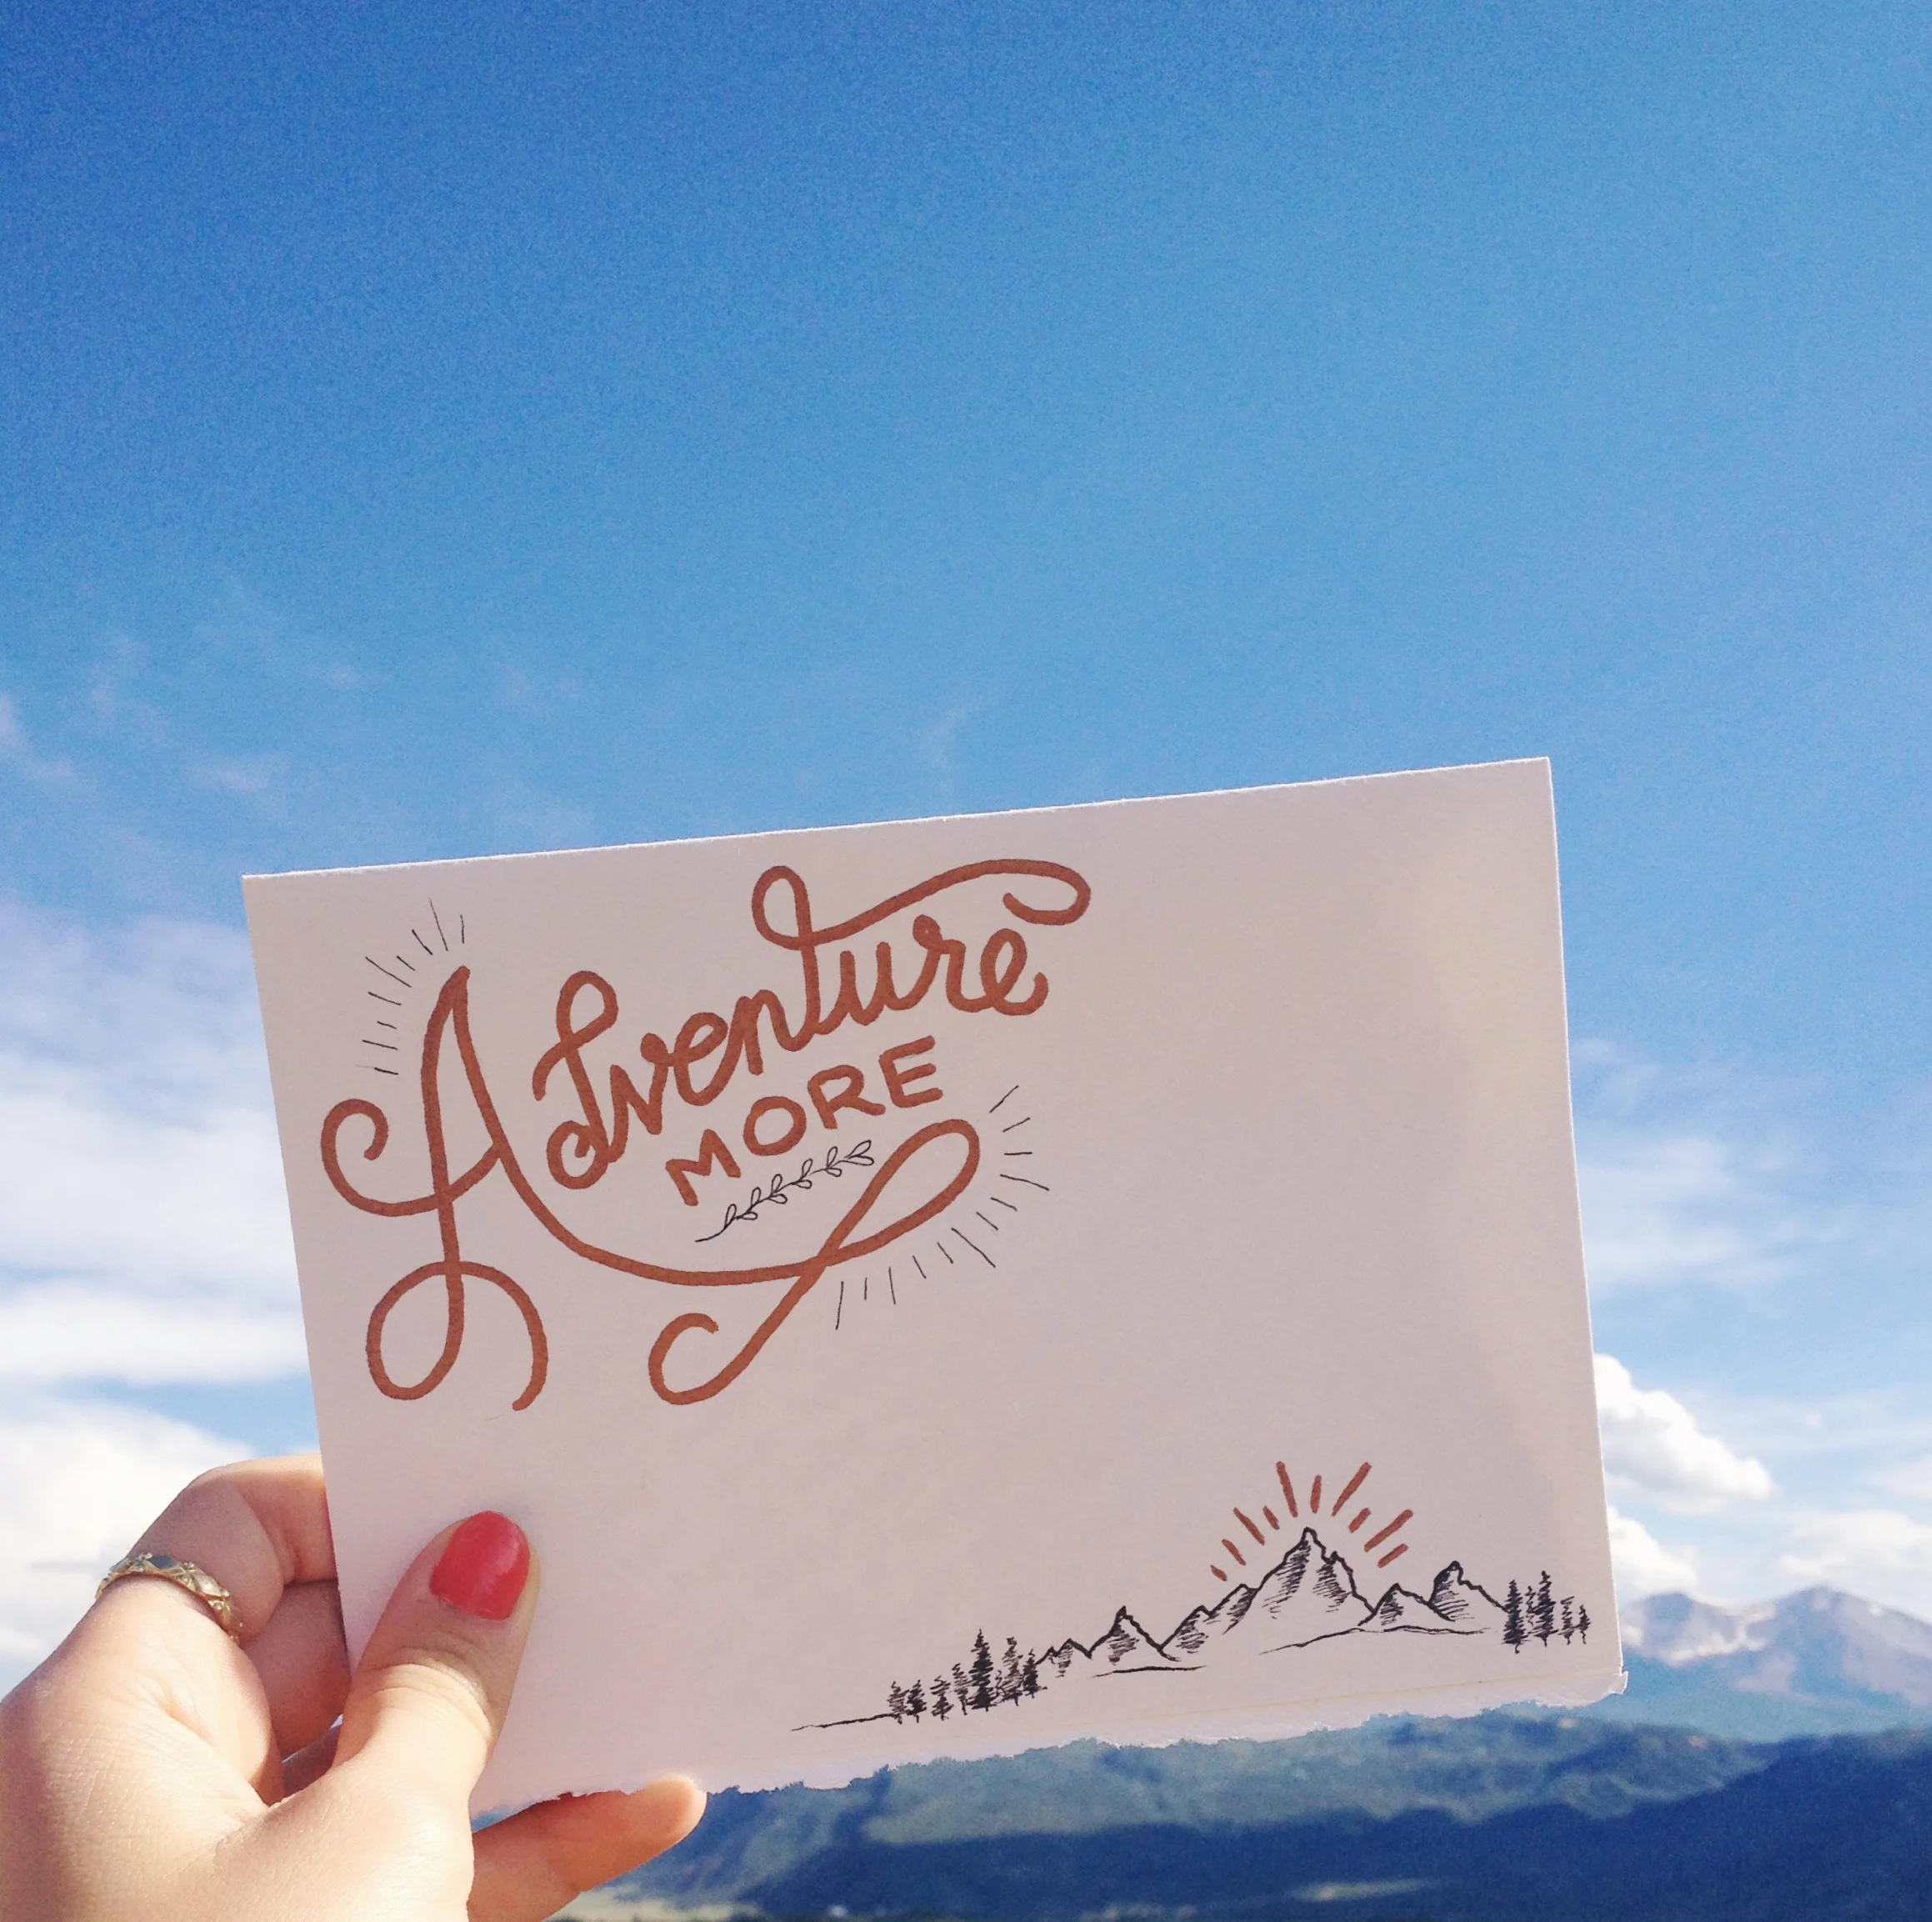 Adventure
MORE